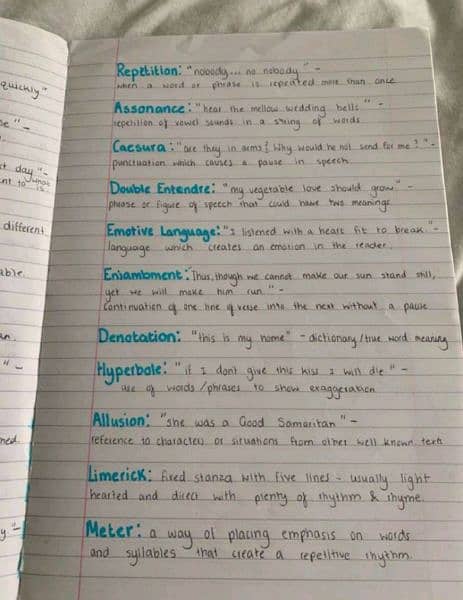 quickly"
se" -
st day" -
what
nt to is
different
able.
an.
" -
ned
y" -
Repetition: "nobody... no nobody" -
when a word or phrase is repeated more than once
Assonance: "hear the mellow wedding bells" -
repetition of vowel sounds in a string of words
Caesura: "are they in arms? Why would he not send for me?" -
punctuation which causes a pause in speech
Double Entendre: "my vegetable love should grow" -
phrase or figure of speech that could have two meanings
Emotive Language: "I listened with a heart fit to break" -
language which creates an emotion in the reader.
Enjambment: Thus, though we cannot make our sun stand still,
yet we will make him run" -
Continuation of one line of verse into the next without a pause
Denotation: "this is my home" - dictionary/true word meaning
Hyperbole: "if I don't give this kiss I will die" -
use of words/phrases to show exaggeration
Allusion: "she was a Good Samaritan" -
reference to characters or situations from other well known text
Limerick: fixed stanza with five lines - usually light
hearted and direct with plenty of rhythm & rhyme.
Meter: a way of placing emphasis on words
and syllables that create a repetitive rhythm.